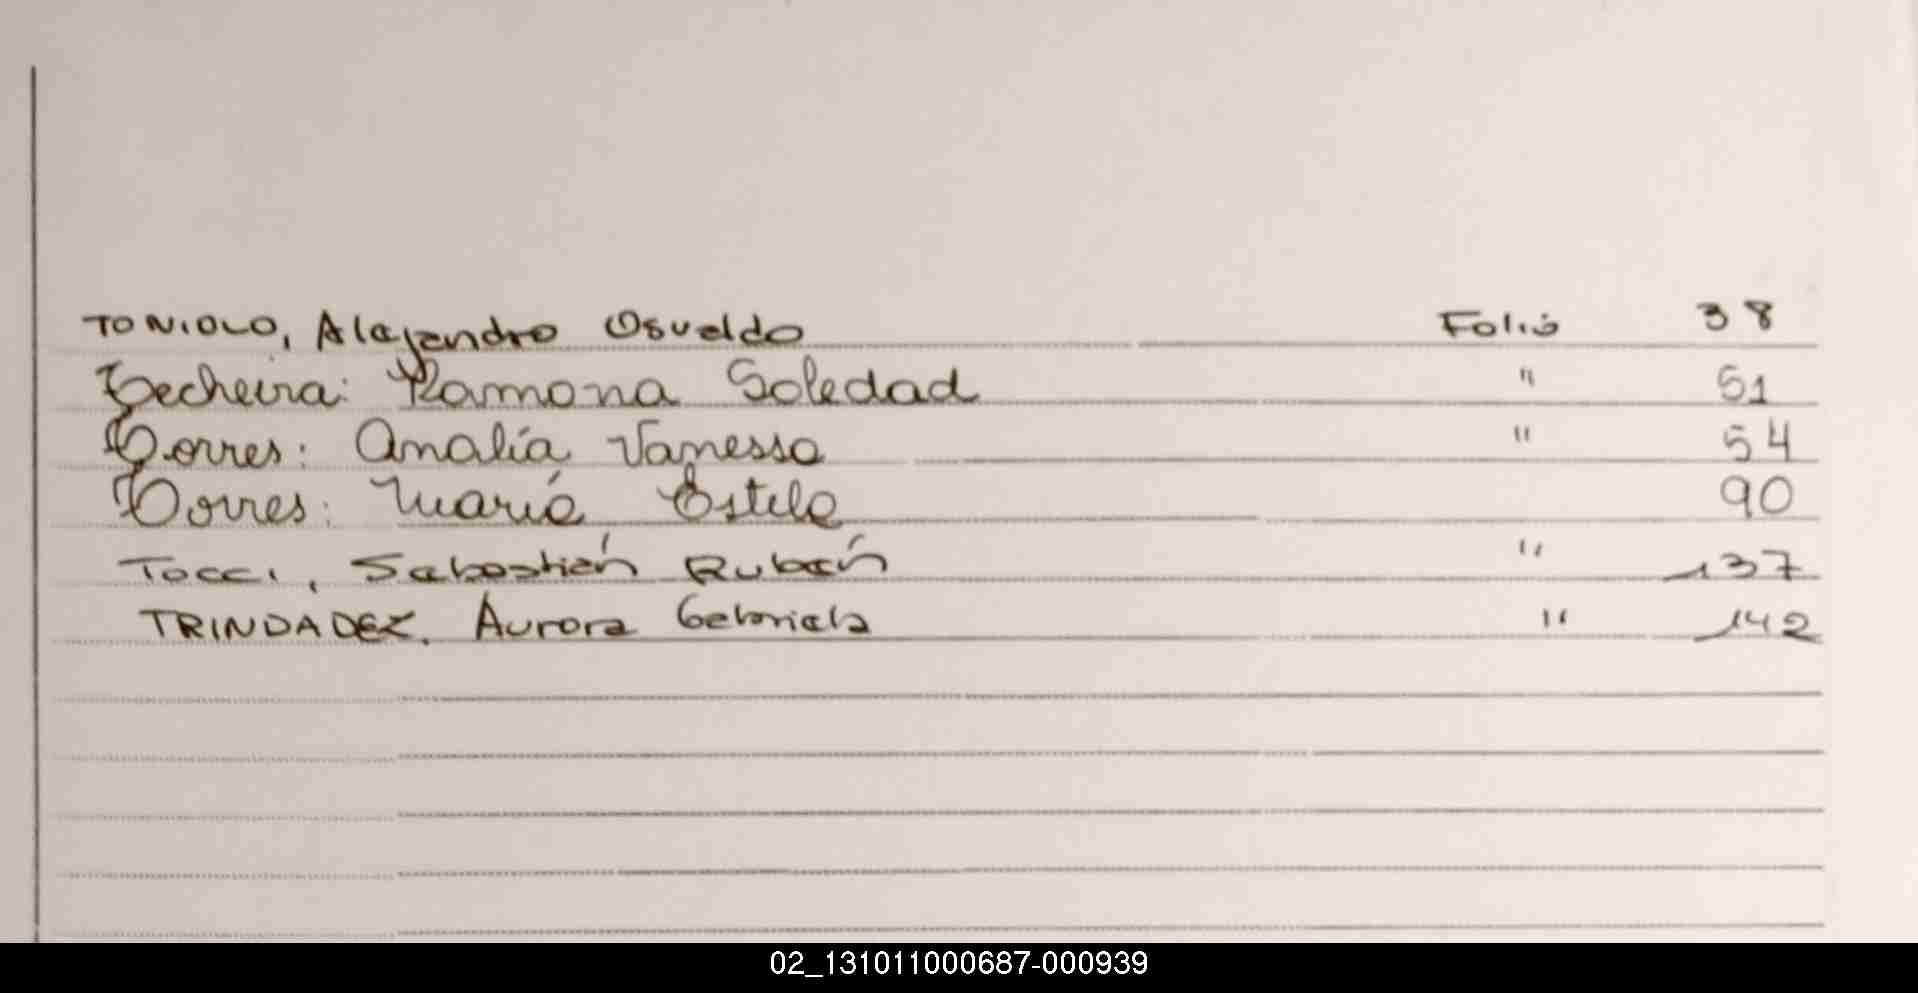 TONIOLO, Alejandro Osvaldo Folio 38
Techeira: Ramona Soledad " 51
Torres: Analía Vanessa " 54
Torres: María Estela 90
Tocci, Sebastián Rubén " 137
TRINDADEZ, Aurora Gabriela " 142
02_131011000687-000939